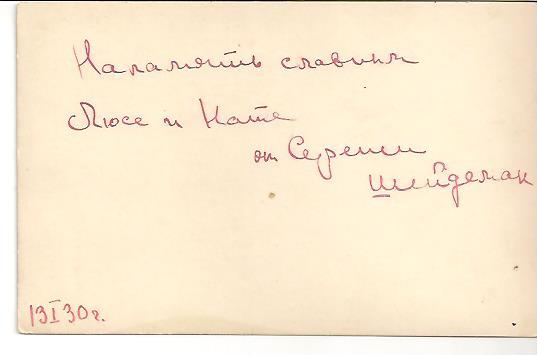 На память славным
Люсе и Нате
от Сережи
Шейдеман
13 I 30 г.